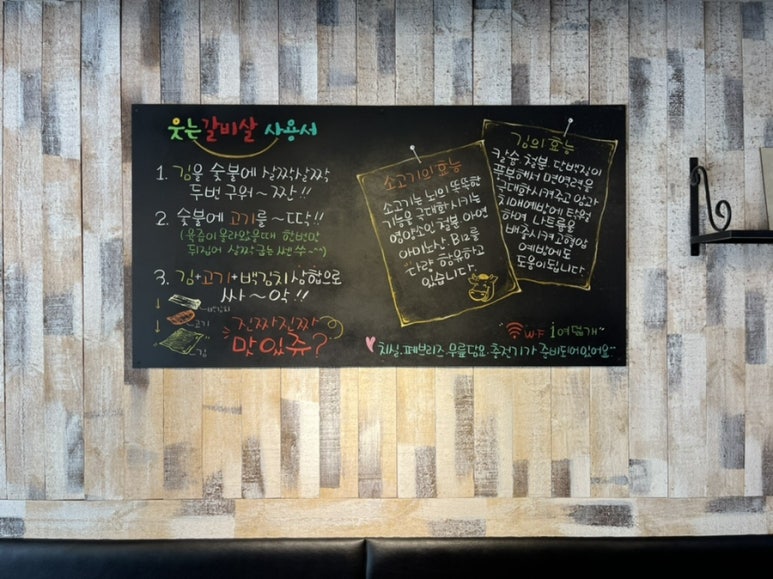 웃는 갈비살 사용서
1. 김을 숯불에 살짝살짝
두번 구워~ 짜잔!!
2. 숯불에 고기를~ 따닥!!
(육즙이 올라왔을때 한번만
뒤집어 살짝 굽는 쎈쑤~^^)
3. 김+고기+백김치 삼합으로
싸~악!!
백김치
고기
김
진짜진짜
맛있쥬?
소고기의 효능
소고기는 뇌의 똑똑한
기능을 극대화시키는
영양소인 철분 아연
아미노산. B12를
다량 함유하고
있습니다.
김의 효능
칼슘. 철분. 단백질이
풍부해서 면역력을
극대화시켜주고 암과
치매예방에 탁월
하며 나트륨을
배출시켜 고혈압
예방에도
도움이 됩니다
WiFi 여덟개~
치실. 페브리즈. 무릎담요. 충전기가 준비되어있어요~